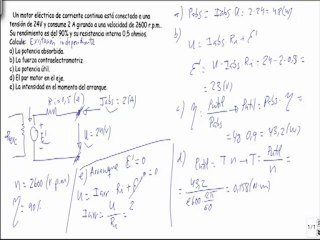 Un motor eléctrico de corriente continua está conectado a una
tensión de 24V y consume 2 A girando a una velocidad de 2600 r.p.m.
Su rendimiento es del 90% y su resistencia interna 0,5 ohmios.
Calcule: Excitación independiente
a) La potencia absorbida.
b) La fuerza contraelectromotriz.
c) La potencia útil.
d) El par motor en el eje.
e) La intensidad en el momento del arranque.
Iabs = 2(A)
E'
U = 24(V)
n = 2600 (r.p.m.)
η = 90%
e) Arranque E' = 0
U = Iarr Ri + E' = 0
Iarr = U / Ri =
a) Pabs = Iabs U = 2 · 24 = 48 (W)
b)
U = Iabs Ri + E'
E' = U - Iabs Ri = 24 - 2 · 0,5 =
= 23 (V)
c) η = Putil / Pabs → Putil = Pabs · η =
= 48 · 0,9 = 43,2 (W)
d) Putil = T n → T = Putil / n =
= 43,2 / 2600 2π/60 = 0,158 (N·m)
1/1